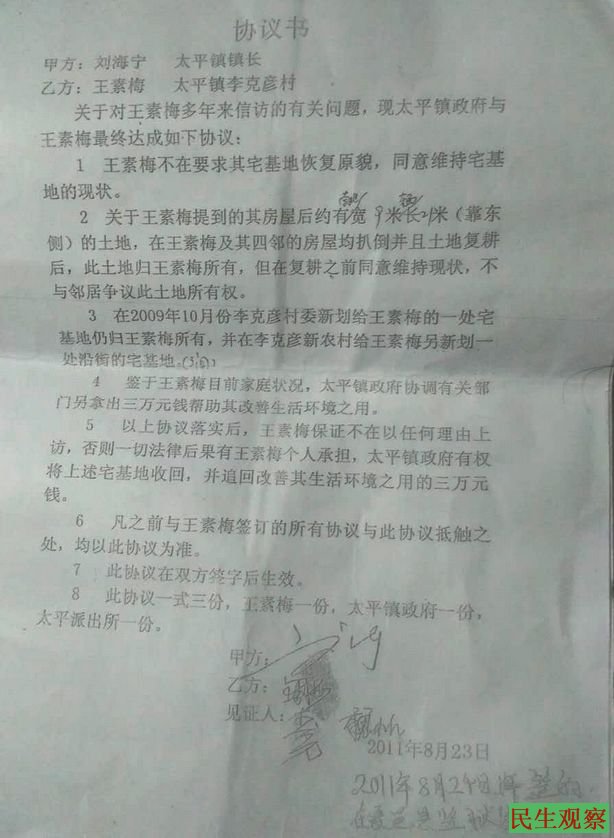 协议书
甲方：刘海宁 太平镇镇长
乙方：王素梅 太平镇李克彦村
关于对王素梅多年来信访的有关问题，现太平镇政府与
王素梅最终达成如下协议：
1 王素梅不在要求其宅基地恢复原貌，同意维持宅基
地的现状。
2 关于王素梅提到的其房屋后约有宽9米长21米（靠东
侧）的土地，在王素梅及其四邻的房屋均扒倒并且土地复耕
后，此土地归王素梅所有，但在复耕之前同意维持现状，不
与邻居争议此土地所有权。
3 在2009年10月份李克彦村委新划给王素梅的一处宅
基地仍归王素梅所有，并在李克彦新农村给王素梅另新划一
处沿街的宅基地。
4 鉴于王素梅目前家庭状况，太平镇政府协调有关部
门另拿出三万元钱帮助其改善生活环境之用。
5 以上协议落实后，王素梅保证不在以任何理由上
访，否则一切法律后果有王素梅个人承担，太平镇政府有权
将上述宅基地收回，并追回改善其生活环境之用的三万元
钱。
6 凡之前与王素梅签订的所有协议与此协议抵触之
处，均以此协议为准。
7 此协议在双方签字后生效。
8 此协议一式三份，王素梅一份，太平镇政府一份，
太平派出所一份。
甲方：
乙方：
见证人：
2011年8月23日
2011年8月29日
民生观察